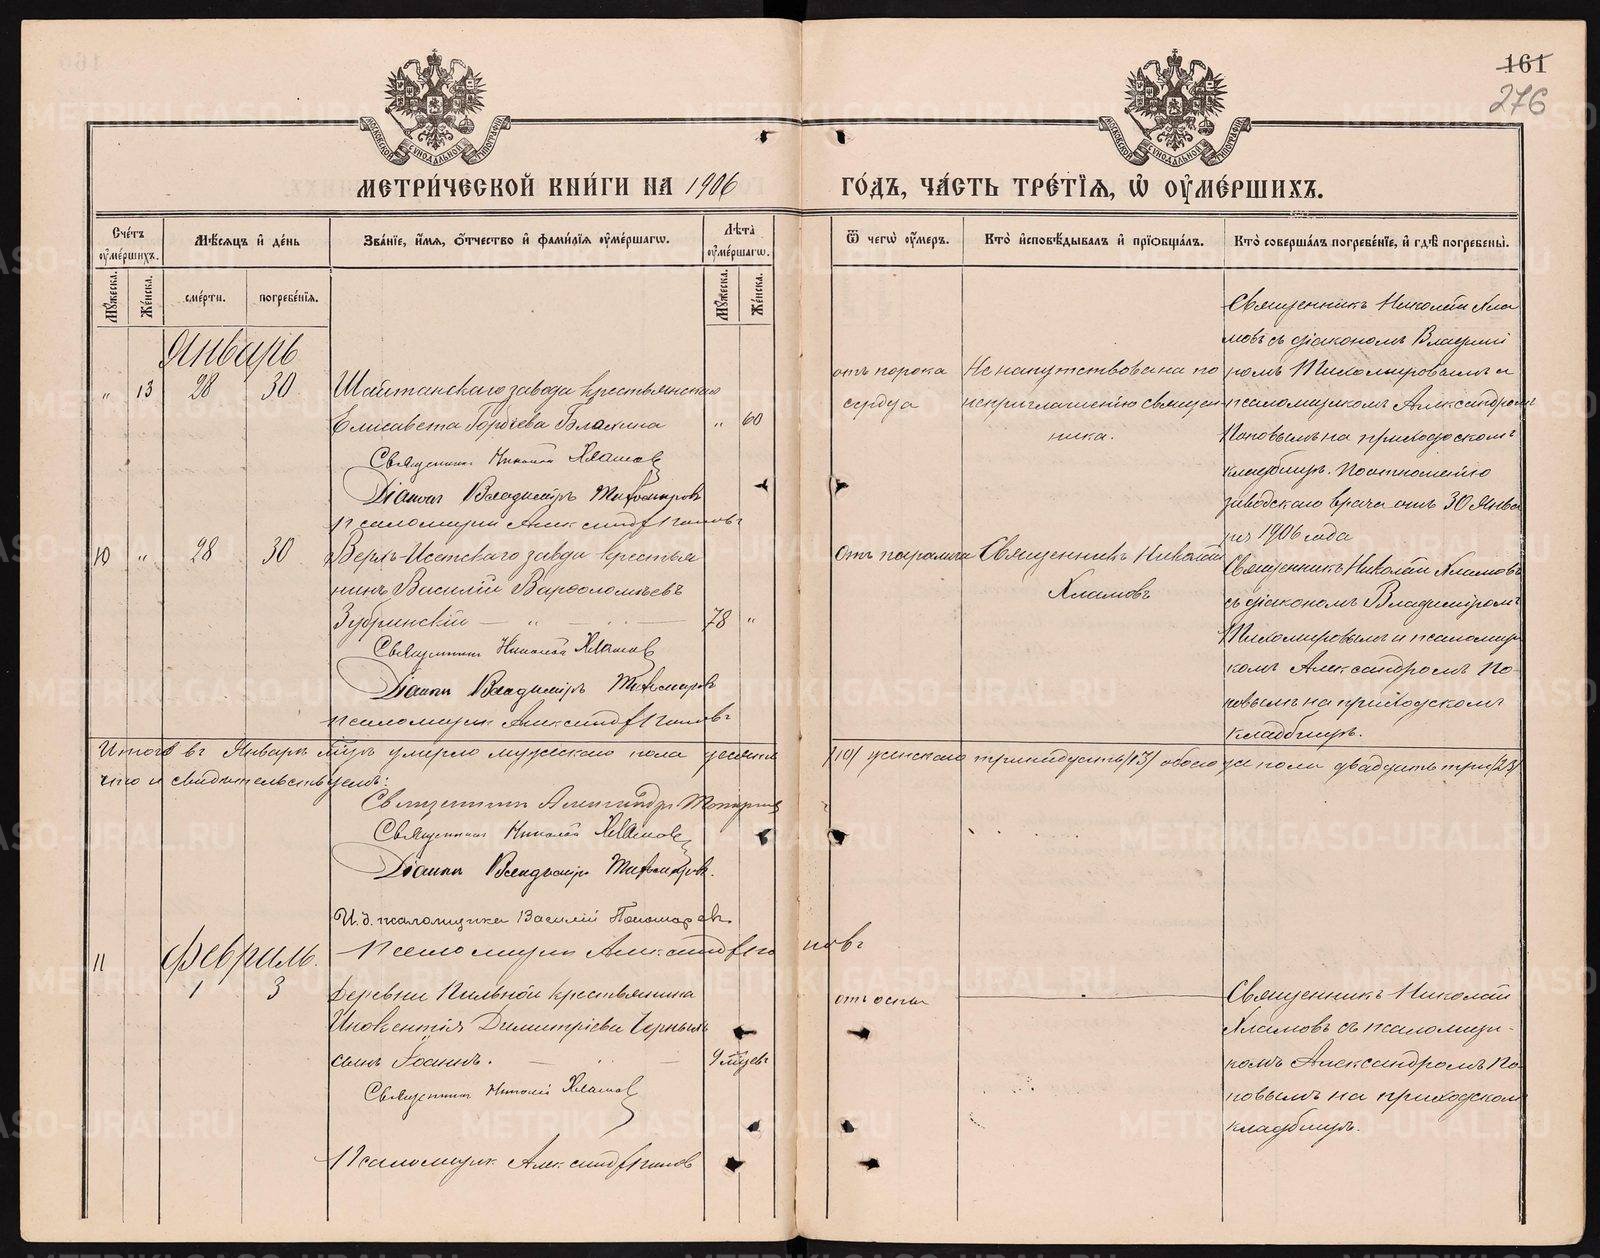 161
276
МЕТРИ́ЧЕСКОЙ КНИ́ГИ НА 1906
ГО́ДЪ, ЧА́СТЬ ТРЕ́ТЇѦ, Ѡ҆ ОУ҆МЕ́РШИХЪ.
Сче́тъ оу҆ме́ршихъ.
Мѣ́сѧцъ и҆ де́нь
Зва́нїе, и҆́мѧ, ѻ҆́тчество и҆ фами́лїѧ оу҆ме́ршагѡ.
Лѣта̀ оу҆ме́ршагѡ.
Ѿ чегѡ̀ оу҆́меръ.
Кто̀ и҆сповѣ́дывалъ и҆ прїѡбща́лъ.
Кто̀ соверша́лъ погребе́нїе, и҆ гдѣ̀ погребены̀.
Мꙋ́жеска.
Же́нска.
сме́рти.
погребе́нїѧ.
Мꙋ́жеска.
Же́нска.
Январь
„ 13 28 30
Шайтанскаго завода крестьянская
Елисавета Гордѣева
„ 60
Священникъ Николай Хламовъ
Діаконъ Владиміръ Тихомировъ
Псаломщикъ Александръ Поповъ
отъ порока
сердца
Не напутствована по
неприглашенію священ-
ника.
Священникъ Николай Хла
мовъ съ діакономъ Владимі
ромъ Тихомировымъ и
псаломщикомъ Александромъ
Поповымъ на приходскомъ
кладбищѣ. По отношенію
заводскаго врача отъ 30 Янва
ря 1906 года
10 „ 28 30
Верхъ-Исетскаго завода крестья
нинъ Василій Варфоломѣевъ
Зубринскій — „ —
78 „
Священникъ Николай Хламовъ
Діаконъ Владиміръ Тихомировъ
Псаломщикъ Александръ Поповъ
Отъ паралича
Священникъ Николай
Хламовъ
Священникъ Николай Хламовъ
съ діакономъ Владиміромъ
Тихомировымъ и псаломщи
комъ Александромъ По-
повымъ на приходскомъ
кладбищѣ.
Итого въ Январѣ м҃цѣ умерло мужескаго пола десять /10/ женскаго тринадцать /13/ обоего пола двадцать три /23/
что и свидѣтельствуемъ:
Священникъ Александръ
Священникъ Николай Хламовъ
Діаконъ Владиміръ Тихомировъ.
И. д. псаломщика Василій Пономаревъ.
Псаломщикъ Александръ Поповъ
Февраль.
11 1 3
Деревни Пильной крестьянина
Инокентія Димитріева Черныхъ
сынъ Іоаннъ. — „ —
9 м҃цевъ
Священникъ Николай Хламовъ
Псаломщикъ Александръ Поповъ
отъ оспы
Священникъ Николай
Хламовъ съ псаломщи-
комъ Александромъ По-
повымъ на приходскомъ
кладбищѣ.